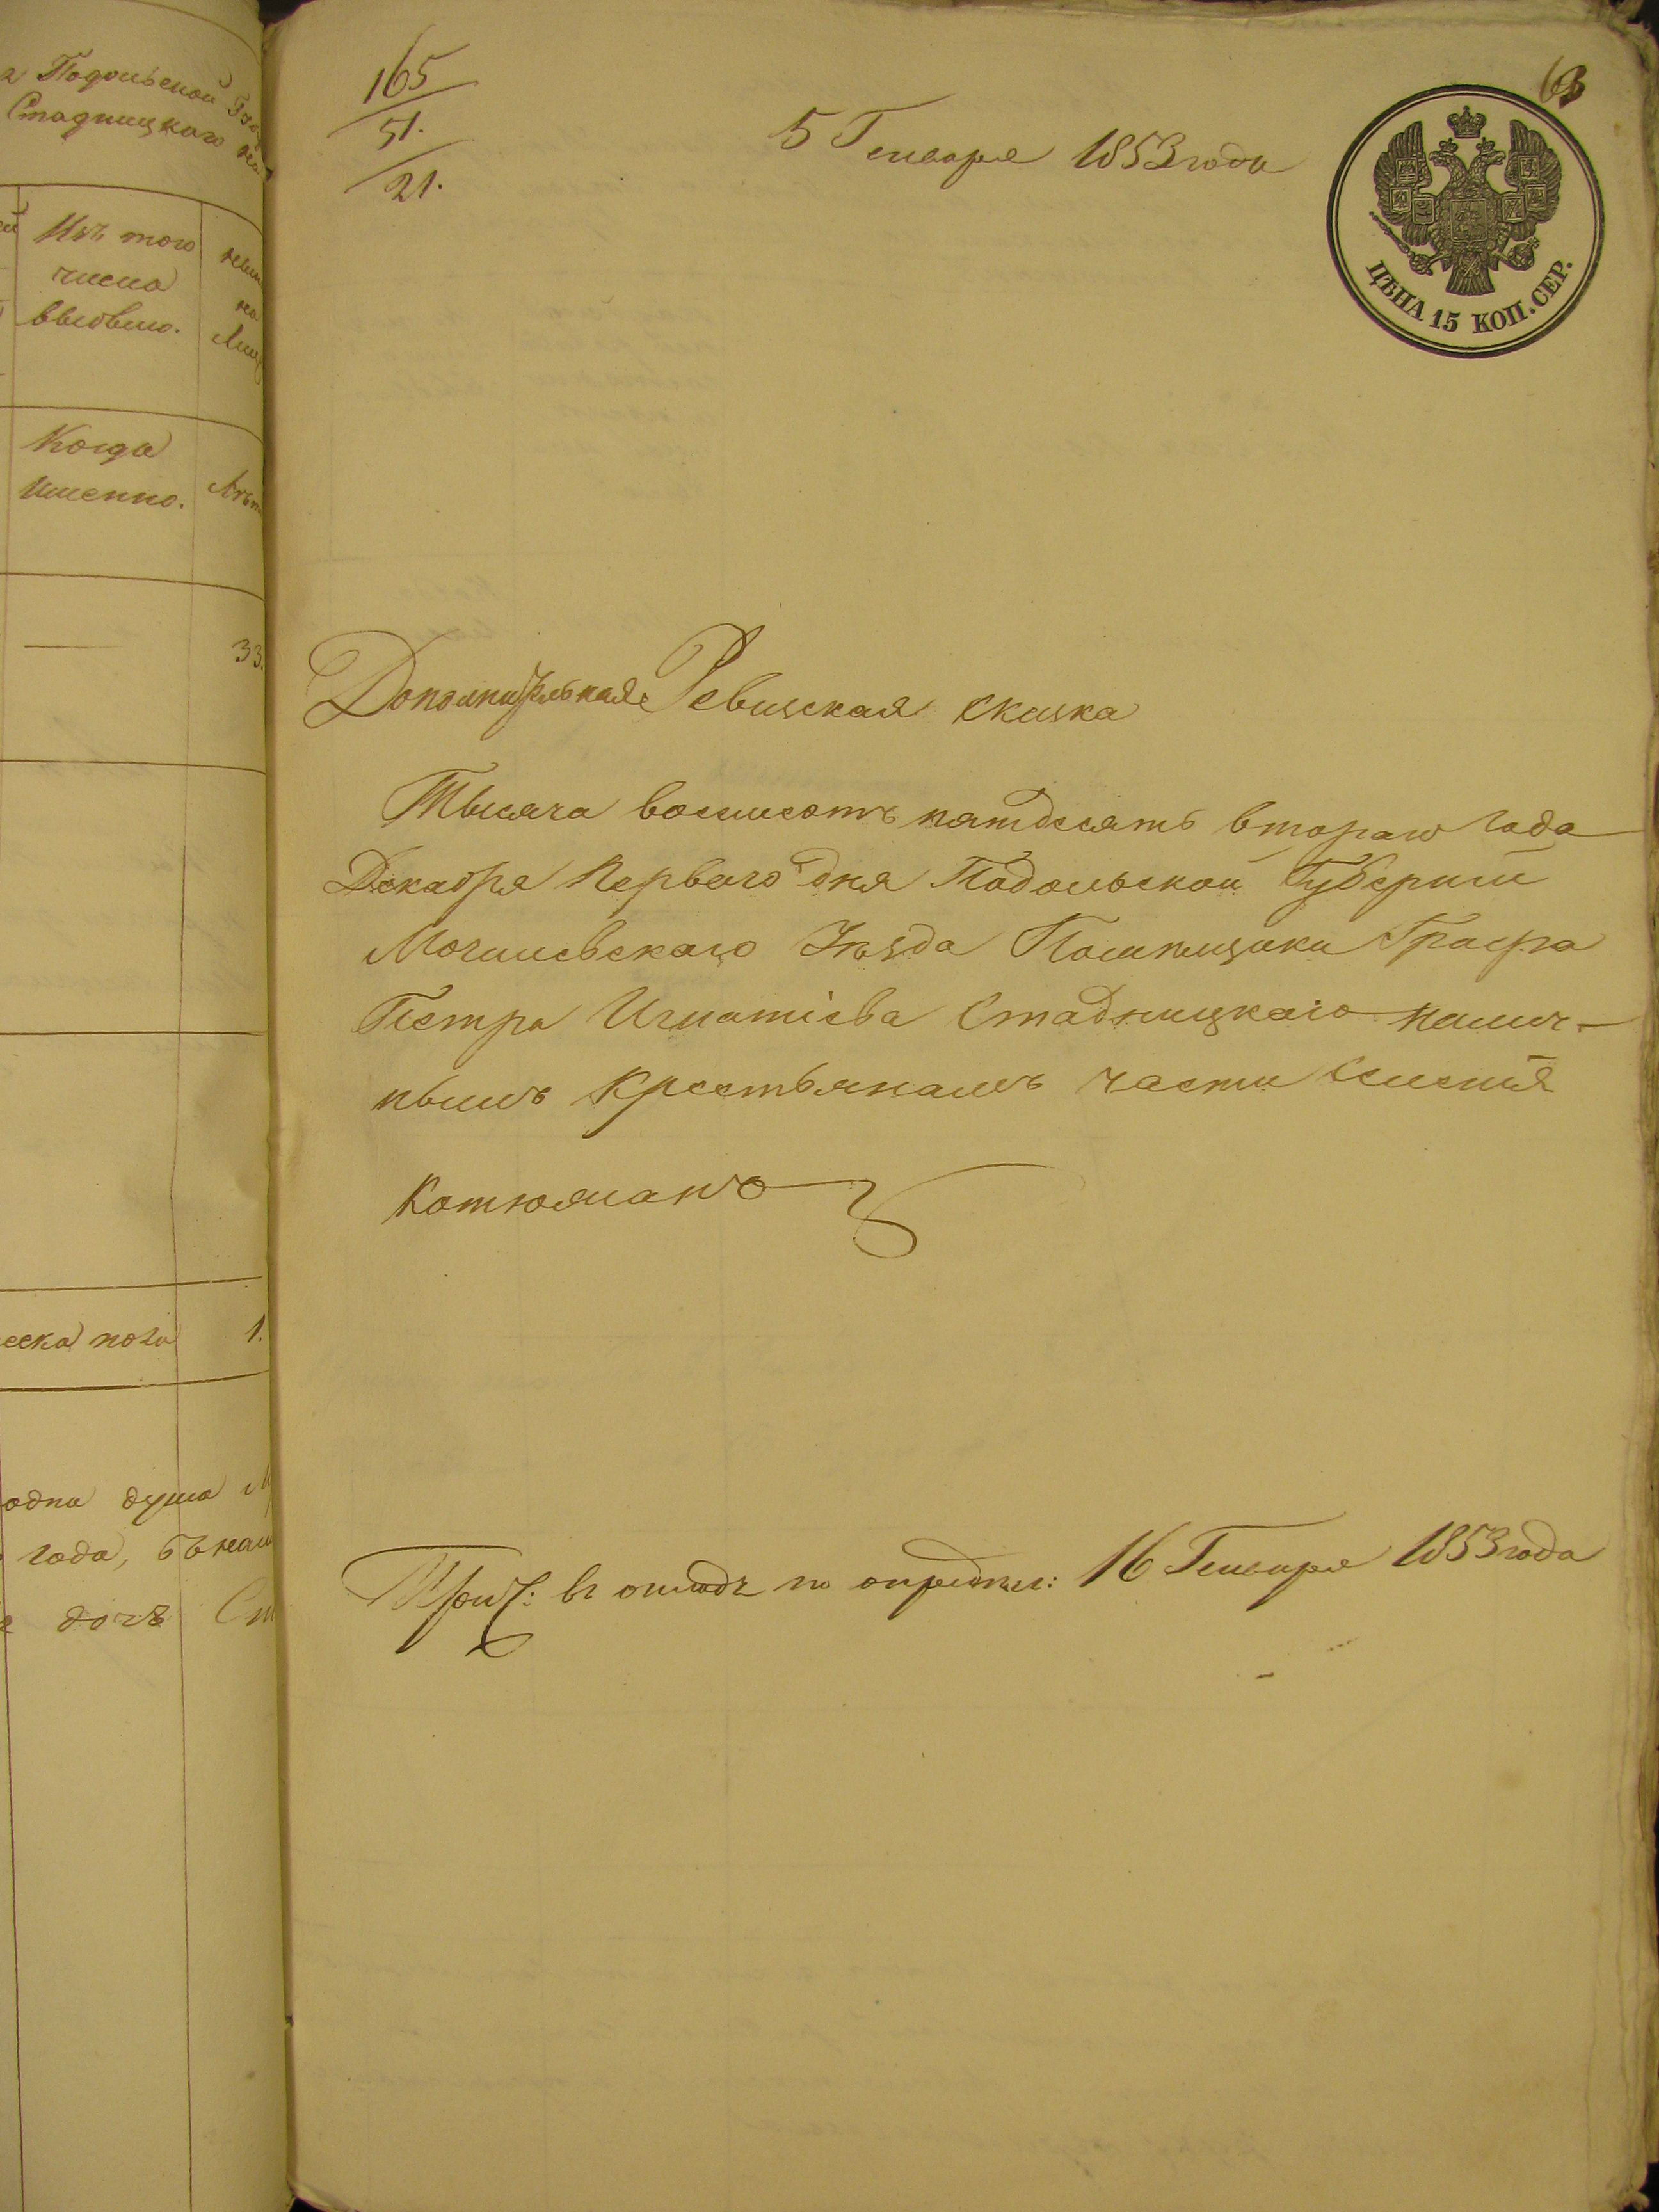 а Подольской
Стадницкаго
Изъ того
числа
выбыло.
Когда
именно.
33.
1.
одна душа
года,
дочь
165
51.
21.
63
5 Генваря 1853 года
ЦѢНА 15 КОП. СЕР.
Дополнительная Ревизская скаска
Тысяча восемсотъ пятдесятъ втораго года
Декабря перваго дня Подольской Губернии
Могилевскаго Уѣзда Помѣщика Графа
Петра Игнатіева Стадницкаго налич-
нымъ крестьянамъ части селения
Котюжанъ
Прич: въ окладъ по опредѣл: 16 Генваря 1853 года